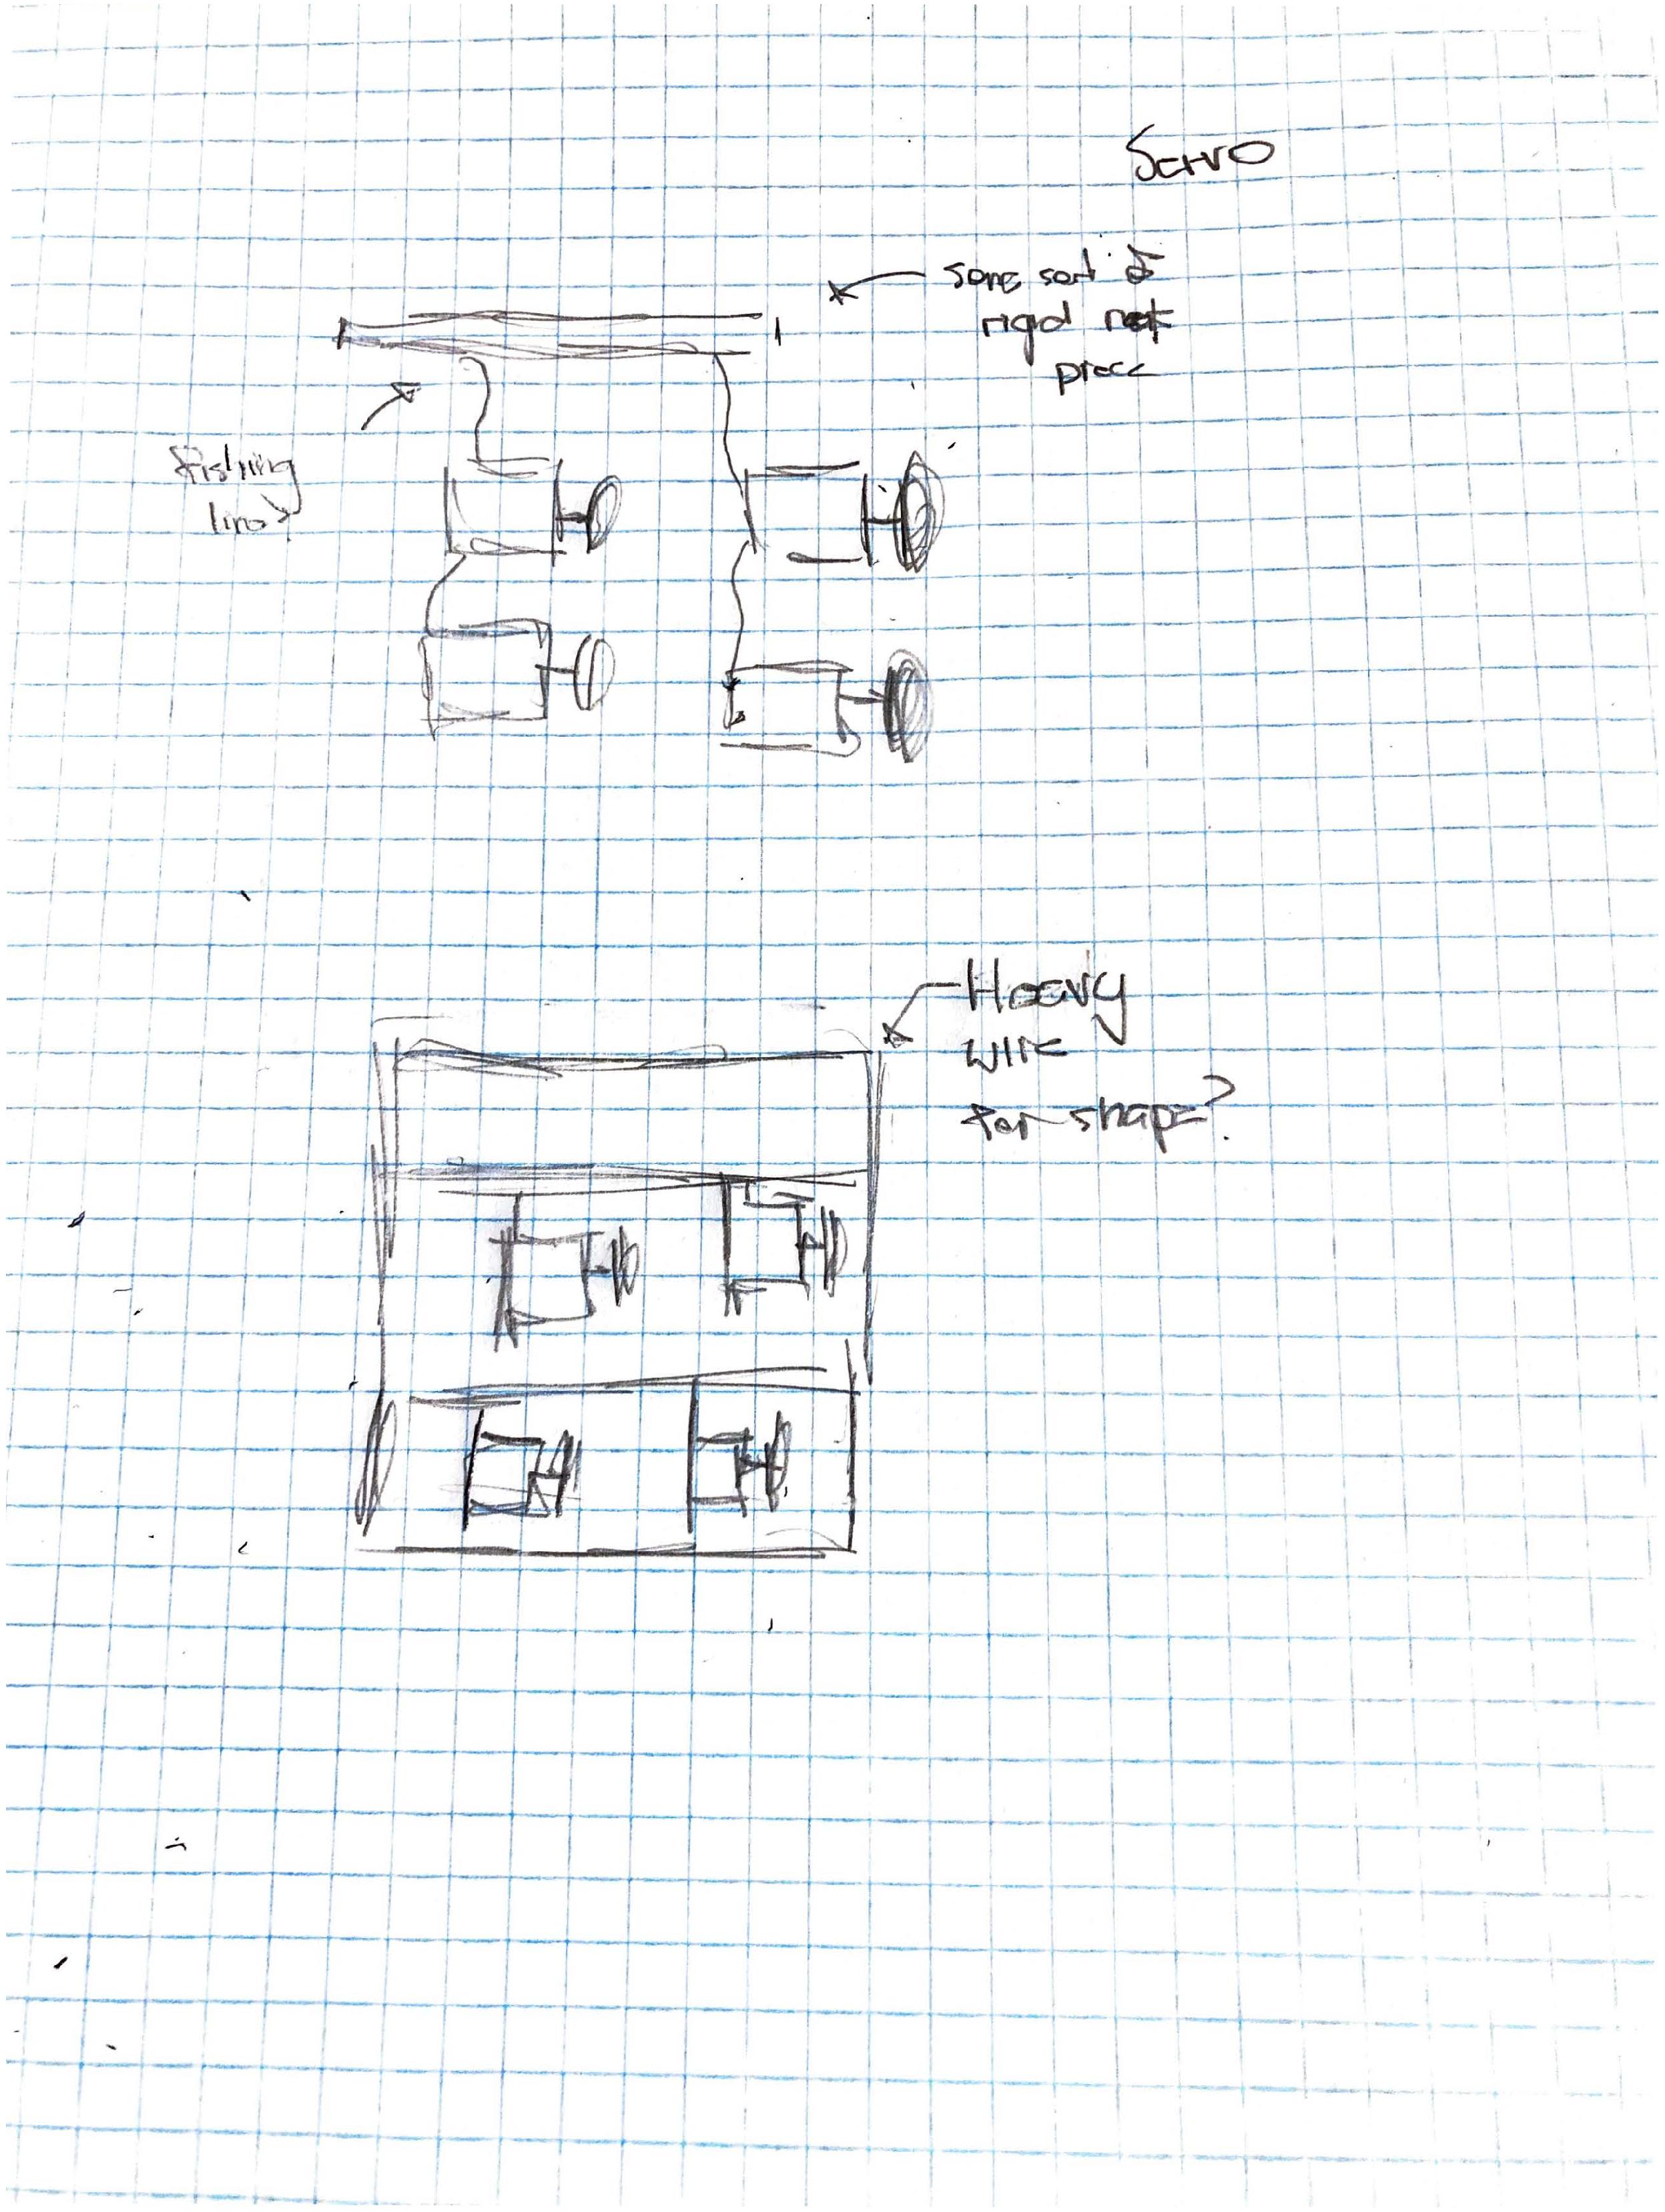 Servo
some sort of
rigid
piece
fishing
line?
Heavy
wire
for shape?